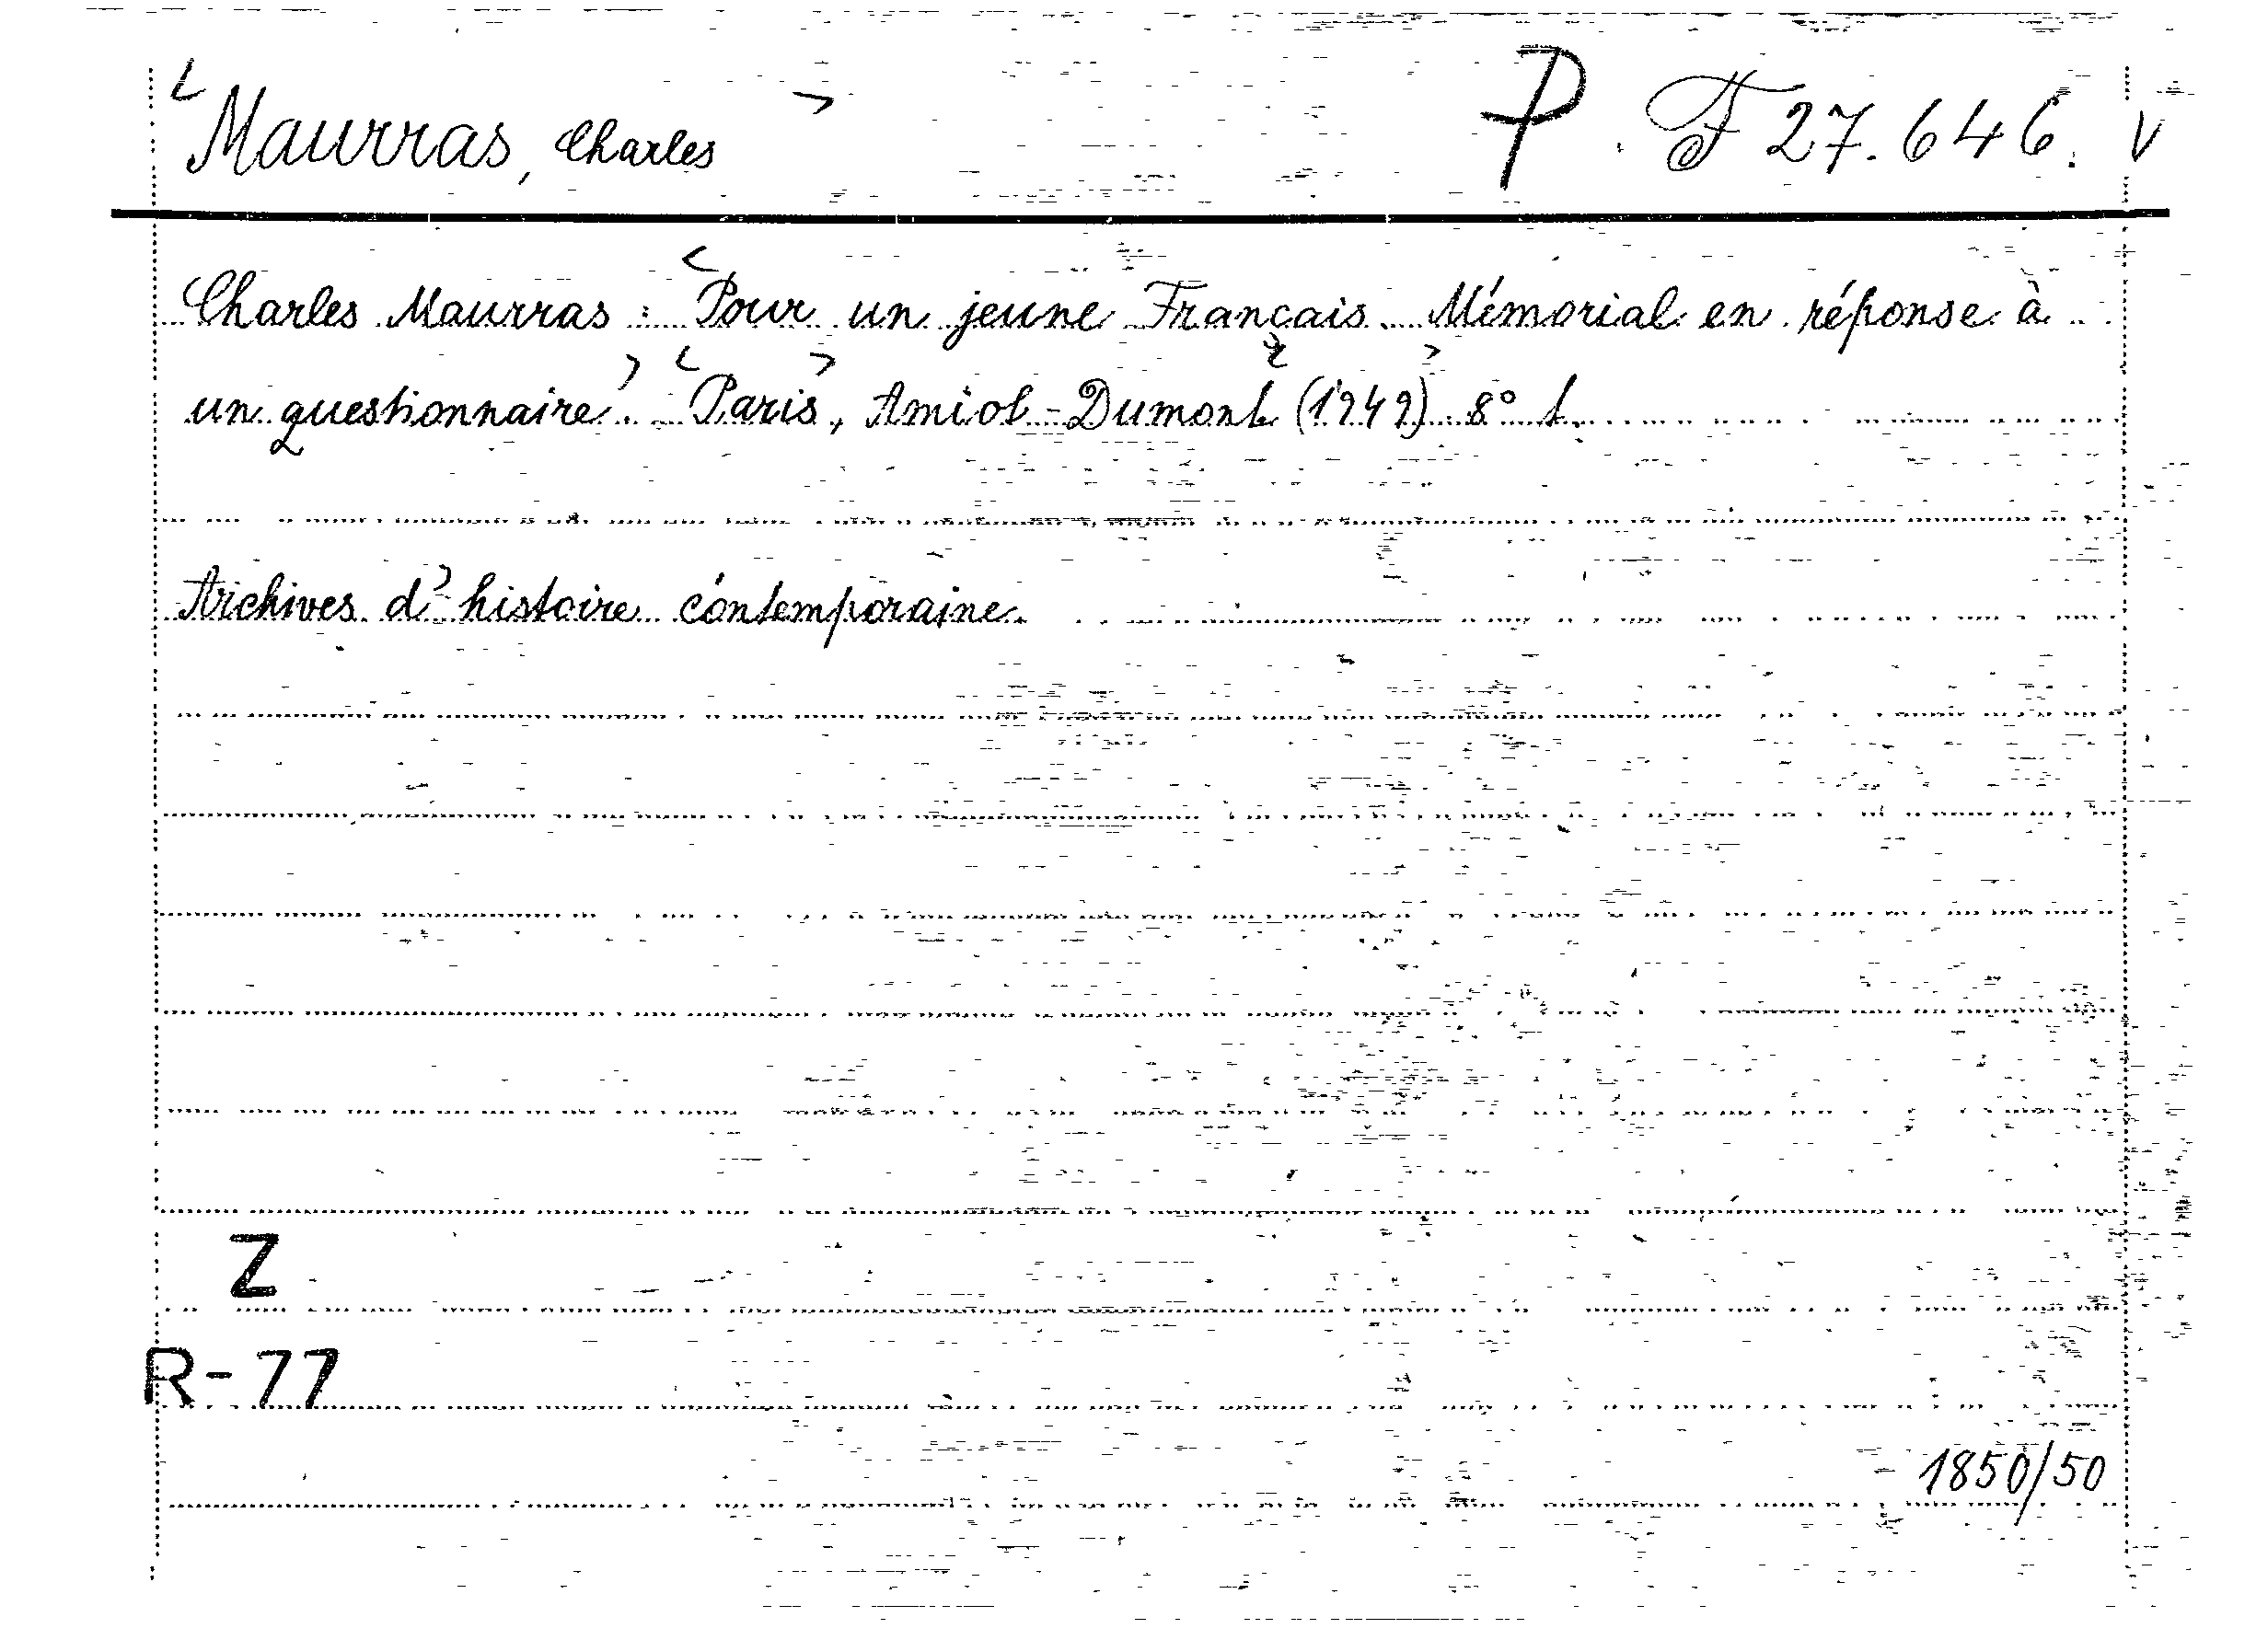 < Maurras, Charles > P . F 27.646. V
Charles Maurras : < Pour un jeune Français. Mémorial en réponse à
un questionnaire > . < Paris > , Amiot-Dumont > (1949) > 8° t.
Archives d'histoire contemporaine.
Z
R-77
1850/50